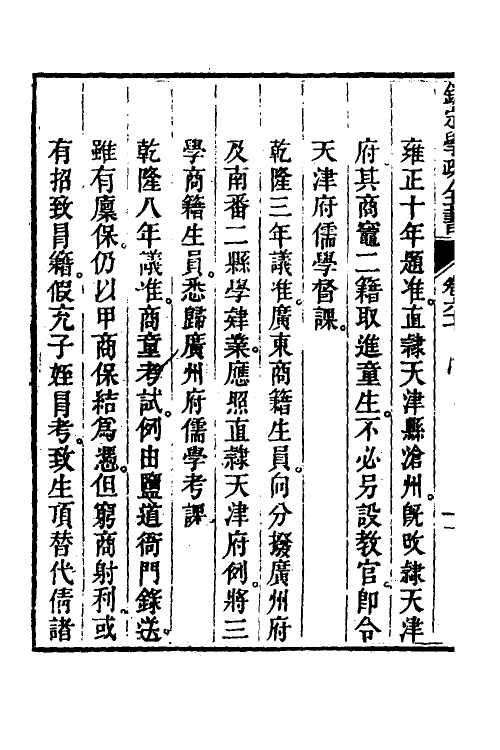 欽定學政全書
卷六
雍正十年題准。直隸天津縣滄州。旣改隸天津
府其商竈二籍取進童生。不必另設教官。卽令
天津府儒學督課。
乾隆三年議准。廣東商籍生員。向分撥廣州府
及南番二縣學肄業。應照直隸天津府例。將三
學商籍生員。悉歸廣州府儒學考課
乾隆八年議准。商童考試。例由鹽道衙門錄送。
雖有廩保。仍以甲商保結爲憑。但窮商射利。或
有招致冐籍。假充子姪冐考。致生頂替代倩諸